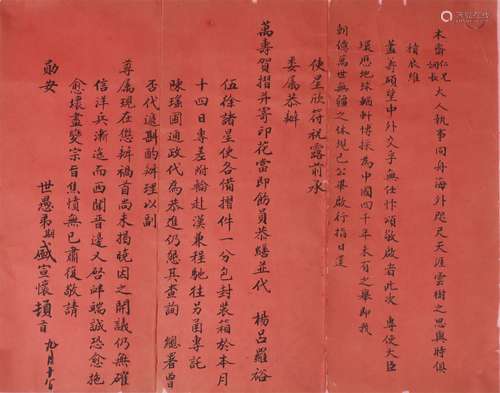 木齋仁兄詞長大人執事同舟海外咫尺天涯雲樹之思與時俱
積依維
藎籌碩望中外交孚無任忭頌敬啟者此次 專使大臣
環歷地球輶軒博採為中國四千年未有之舉即我
朝億萬世無疆之休現已公畢啟行指日還
使星欣符祝露前承
委屬恭辦
萬壽賀摺并寄印花當即飭員恭繕並代 楊呂羅裕
伍徐諸星使各備摺件一分包封裝箱於本月
十四日專差附輪赴漢兼程馳往另函專託
陳瑤圃通政代為恭進仍懇其查詢 總署曾
否代遞斟酌辦理以副
尊屬現在懲辦禍首尚未揭曉因之開議仍無確
信洋兵漸進而西聞晉邊又啟衅端誠恐愈拖
愈壞盡變宗旨焦憤無已肅復敬請
勛安
世愚弟期盛宣懷頓首 九月十六日